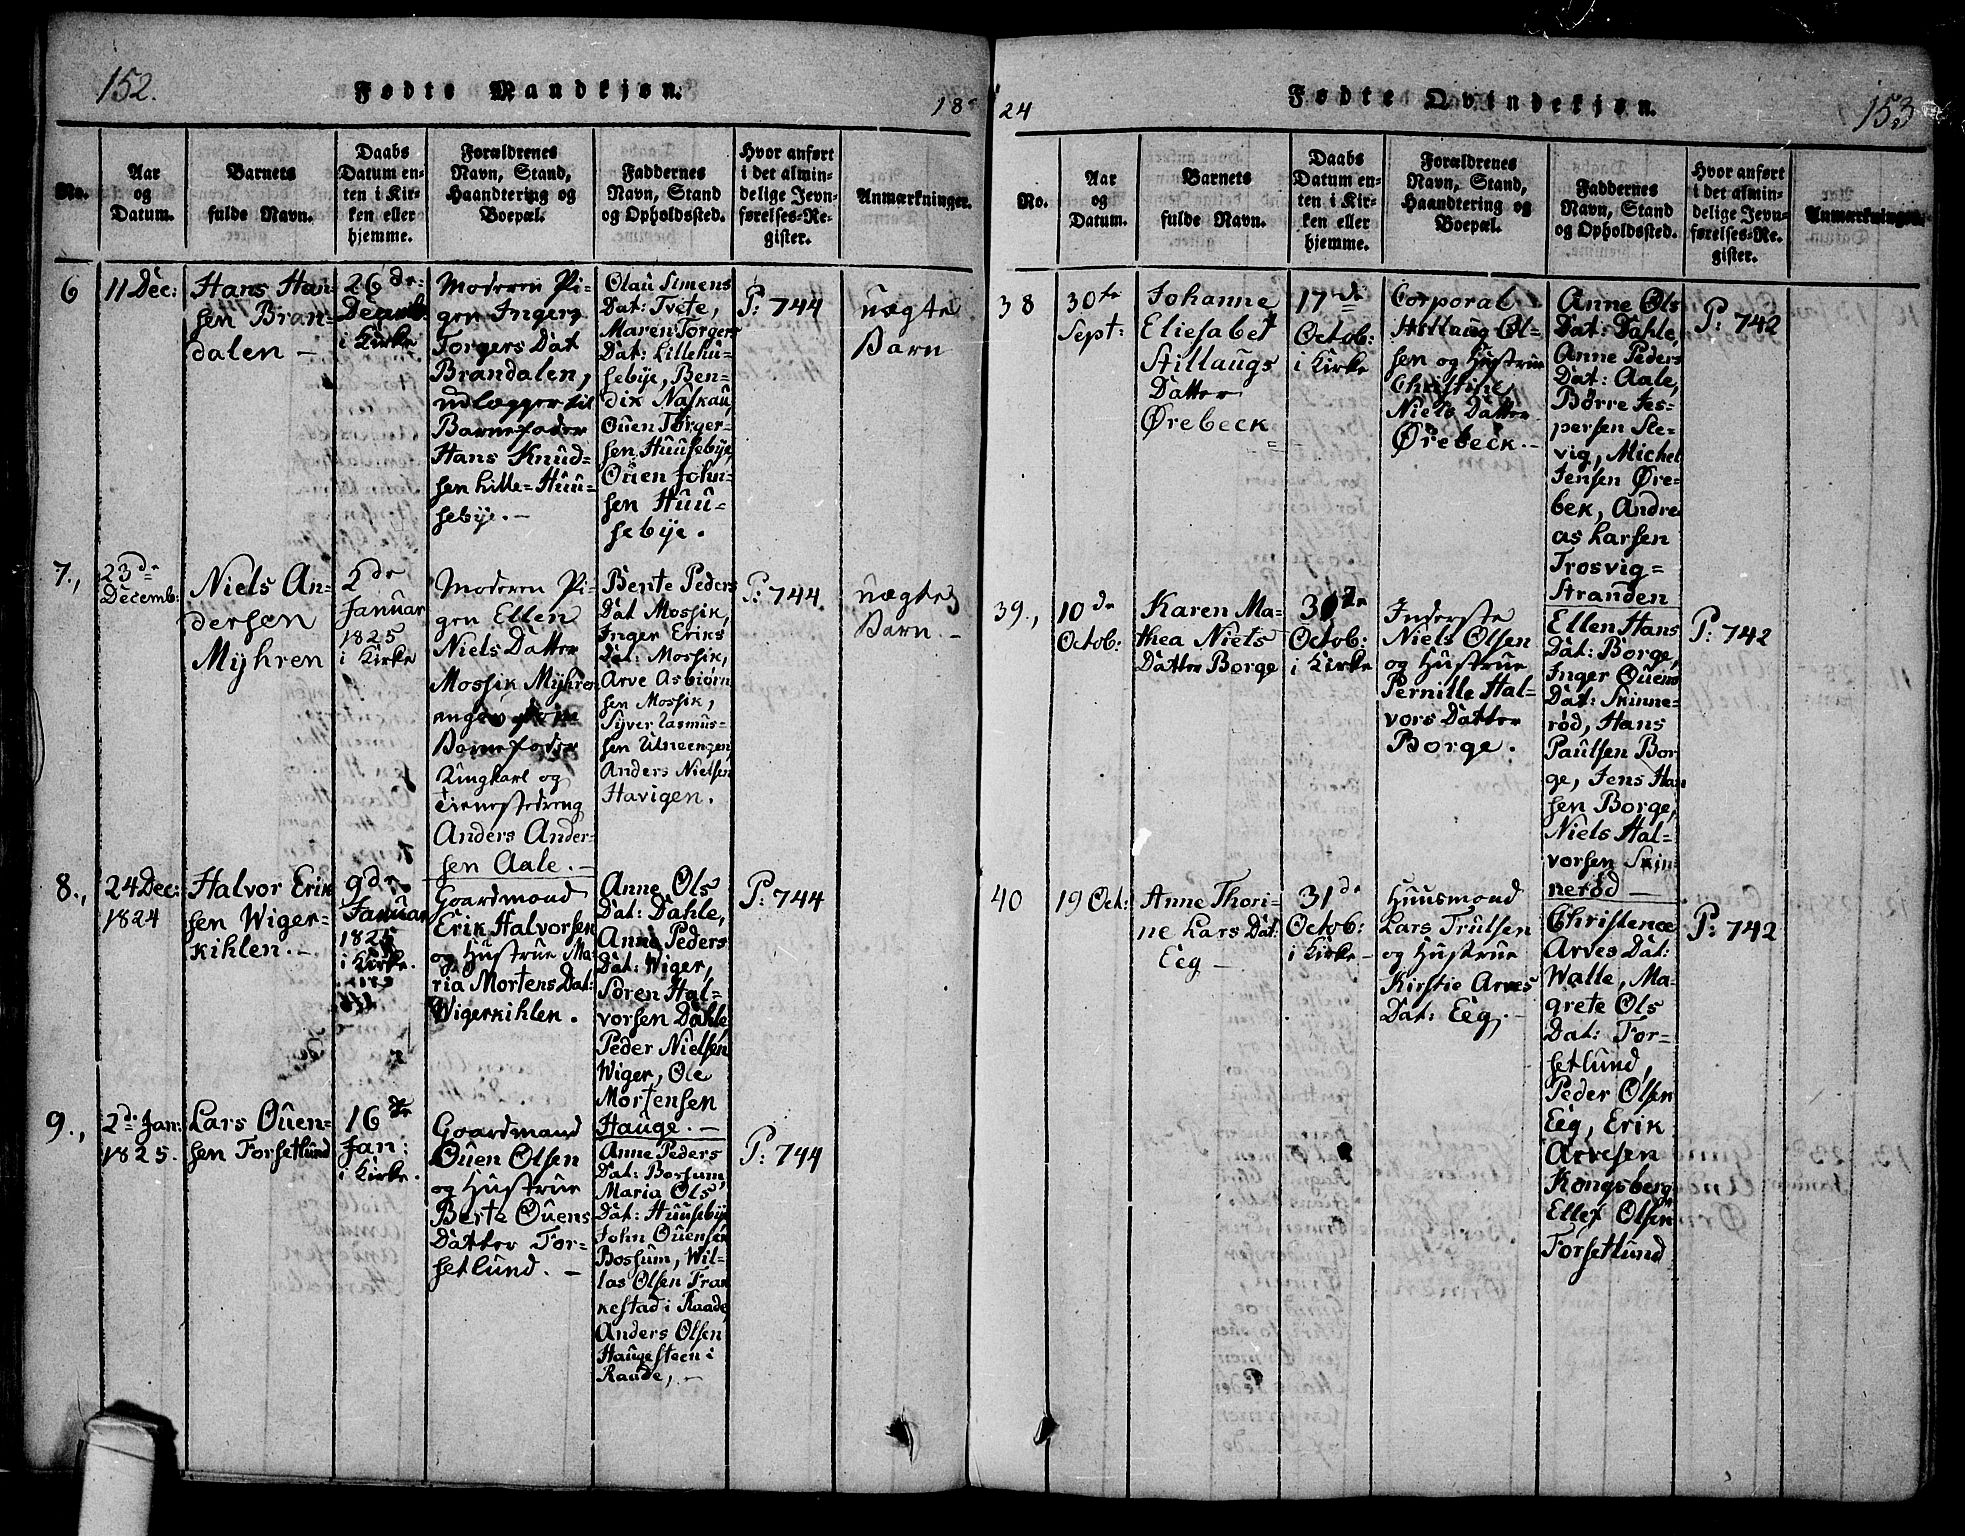 152.
Fødte Mandkjøn.
18
No.
Aar
og
Datum.
Barnets
fulde Navn.
Daabs
Datum en-
ten i Kir-
ken eller
hjemme.
Forældrenes
Navn, Stand,
Haandtering og
Boepæl.
Faddernes
Navn, Stand
og Opholdssted.
Hvor anført
i det almin-
delige Jevn-
førelses-Re-
gister.
Anmærkninger.
6
11 Dec:
Hans Han-
sen Bran-
dalen –
26de
Decemb.
i Kirke
Moderen Pi-
gen Inger
Torgers Dat
Brandalen,
udlægger til
Barnefader
Hans Knud-
sen Lille-Huu-
sebÿe. –
Olau Simens
Dat: Tvete,
Maren Torgers
Dat: Lillehu-
sebÿe, Ben-
dix Naskau,
Ouen Torger-
sen Huusebÿe,
Ouen John-
sen Huu-
sebÿe.
P: 744
uægte
Barn
7.,
23de
Decemb:
Niels An-
dersen
Mÿhren
2de
Januar
1825
i Kirke
Moderen Pi-
gen Ellen
Niels Datter
Mossik Mÿhre
Barnefader
Ungkarl og
Tienestedreng
Anders Ander-
sen Aale. –
Bente Peders
Dat Mossik,
Inger Eriks
Dat: Mossik,
Arve Asbiørn
sen Mossik,
Syver Rasmus-
sen Utneengen
Anders Nielsen
Havigen.
P: 744.
uægte
Barn. –
8.,
24 Dec:
1824
Halvor Erik
sen Wiger-
kihlen. –
9de
Januar
1825
i Kirke.
Gaardmand
Erik Halvorsen
og Hustrue Ma-
ria Mortens Dat:
Wigerkihlen.
Anne Ols
Dat: Dahle,
Anne Peders
Dat: Wiger,
Søren Hal-
vorsen Dahle
Peder Nielsen
Wiger, Ole
Mortensen
Hauge. –
P: 744
9.,
2de Jan:
1825.
Lars Ouen-
sen Forsetlund
16de
Jan:
i Kirke.
Gaardmand
Ouen Olsen
og Hustrue
Berte Ouens
Datter For-
setlund. –
Anne Peders
Dat: Bossum,
Maria Ols
Dat: Huusebÿe
John Ouensen
Bossum, Wil-
las Olsen Fran
kestad i Raade,
Anders Olsen
Haugesteen i
Raade, –
P: 744
24
Fødte Qvindekjøn.
153
No.
Aar
og
Datum.
Barnets
fulde Navn.
Daabs
Datum en-
ten i Kir-
ken eller
hjemme.
Forældrenes
Navn, Stand,
Haandtering og
Boepæl.
Faddernes
Navn, Stand
og Opholdssted.
Hvor anført
i det almin-
delige Jevn-
førelses-Re-
gister.
Anmærkninger.
38
30te
Sept:
Johanne
Eliesabet
Stillaugs
Datter
Ørebeck
17de
Octob:
i Kirke
Corporal
Stillaug Ol-
sen og Hustrue
Christine
Niels Datter
Ørebeck. –
Anne Ols
Dat: Dahle,
Anne Peders
Dat: Aale,
Børre Jes-
persen Sle-
vig, Michel
Jensen Øre-
bek, Andre
as Larsen
Trosvig=
Stranden
P: 742
39.,
10de
Octob:
Karen Ma-
thea Niels
Datter Borge
31te
Octob:
i Kirke
Inderste
Niels Olsen
og Hustrue
Pernille Hal-
vors Datter
Borge.
Ellen Hans
Dat: Borge,
Inger Ouens
Dat: Skinne-
rød, Hans
Paulsen Bor-
ge, Jens Han
sen Borge,
Niels Hal-
vorsen Skin-
nerød –
P: 742
40
19 Oct:
Anne Thori-
ne Lars Dat:
Eeg –
31de
Octob:
i Kirke –
Huusmand
Lars Trulsen
og Hustrue
Kirstie Arves
Dat: Eeg. –
Christence
Arves Dat:
Walle, Ma-
grete Ols
Dat: For-
setlund,
Peder Olsen
Eeg, Erik
Arvesen
Kongsberg
Ellef Olsen
Forsetlund
P: 742